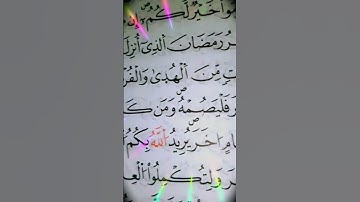 خَيْرٌ لَّكُمْ إِن
رَمَضَانَ الَّذِىٓ أُنزِلَ
مِّنَ الْهُدٰى وَالْفُرْ
فَلْيَصُمْهُ وَمَن كَ
اَخَرَ يُرِيدُ اللّٰهُ بِكُمُ
وَلِتُكْمِلُوا الْعِ